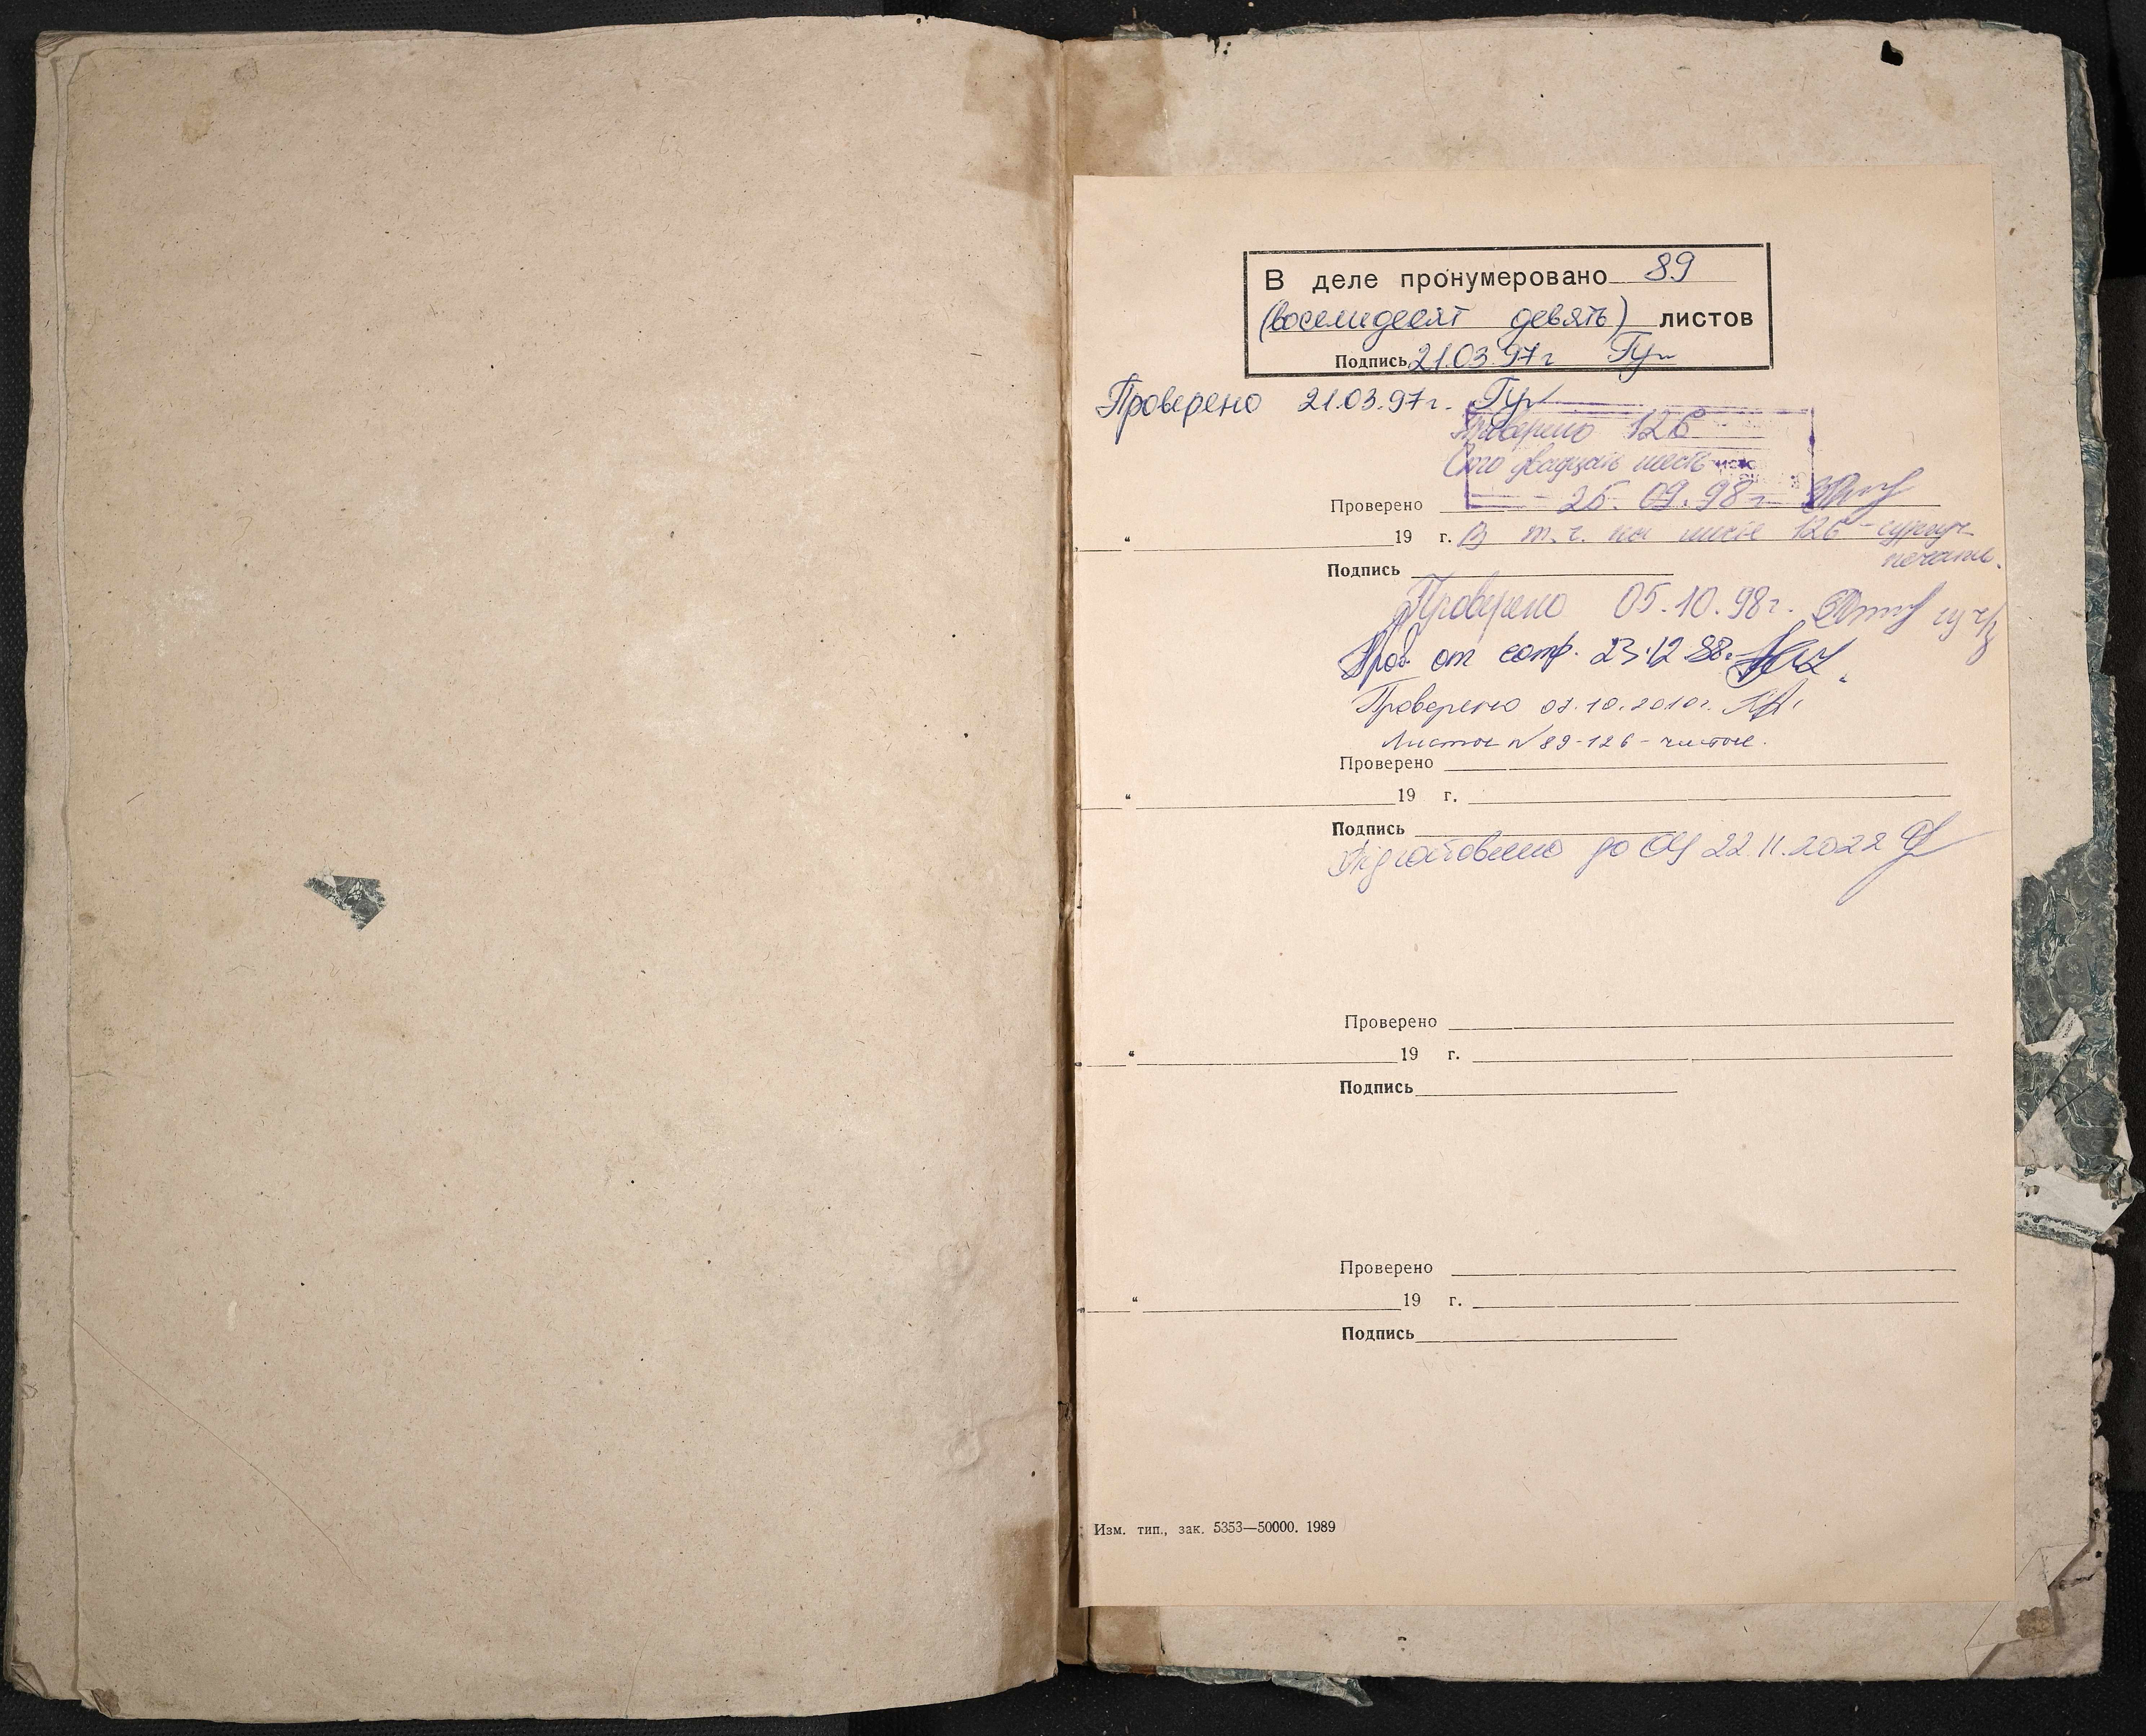 В деле пронумеровано 89
(восемидесят девять) листов
Подпись 21.03.97г Гу
Проверено 21.03.97г. Гу
Проверено 126
Сто двадцать шесть
Проверено 25.09.98г
" 19 г. В т.ч. на листе 126 - сургуч
печать.
Подпись
Проверено 05.10.98г.
Пров. от сотр. 23.12.98г.
Проверено 07.10.2010г.
Листы № 89-126 - чистые.
Проверено
" 19 г.
Подпись
Підготовлено до ОЦ 22.11.2022
Проверено
" 19 г.
Подпись
Проверено
" 19 г.
Подпись
Изм. тип., зак. 5353—50000. 1989